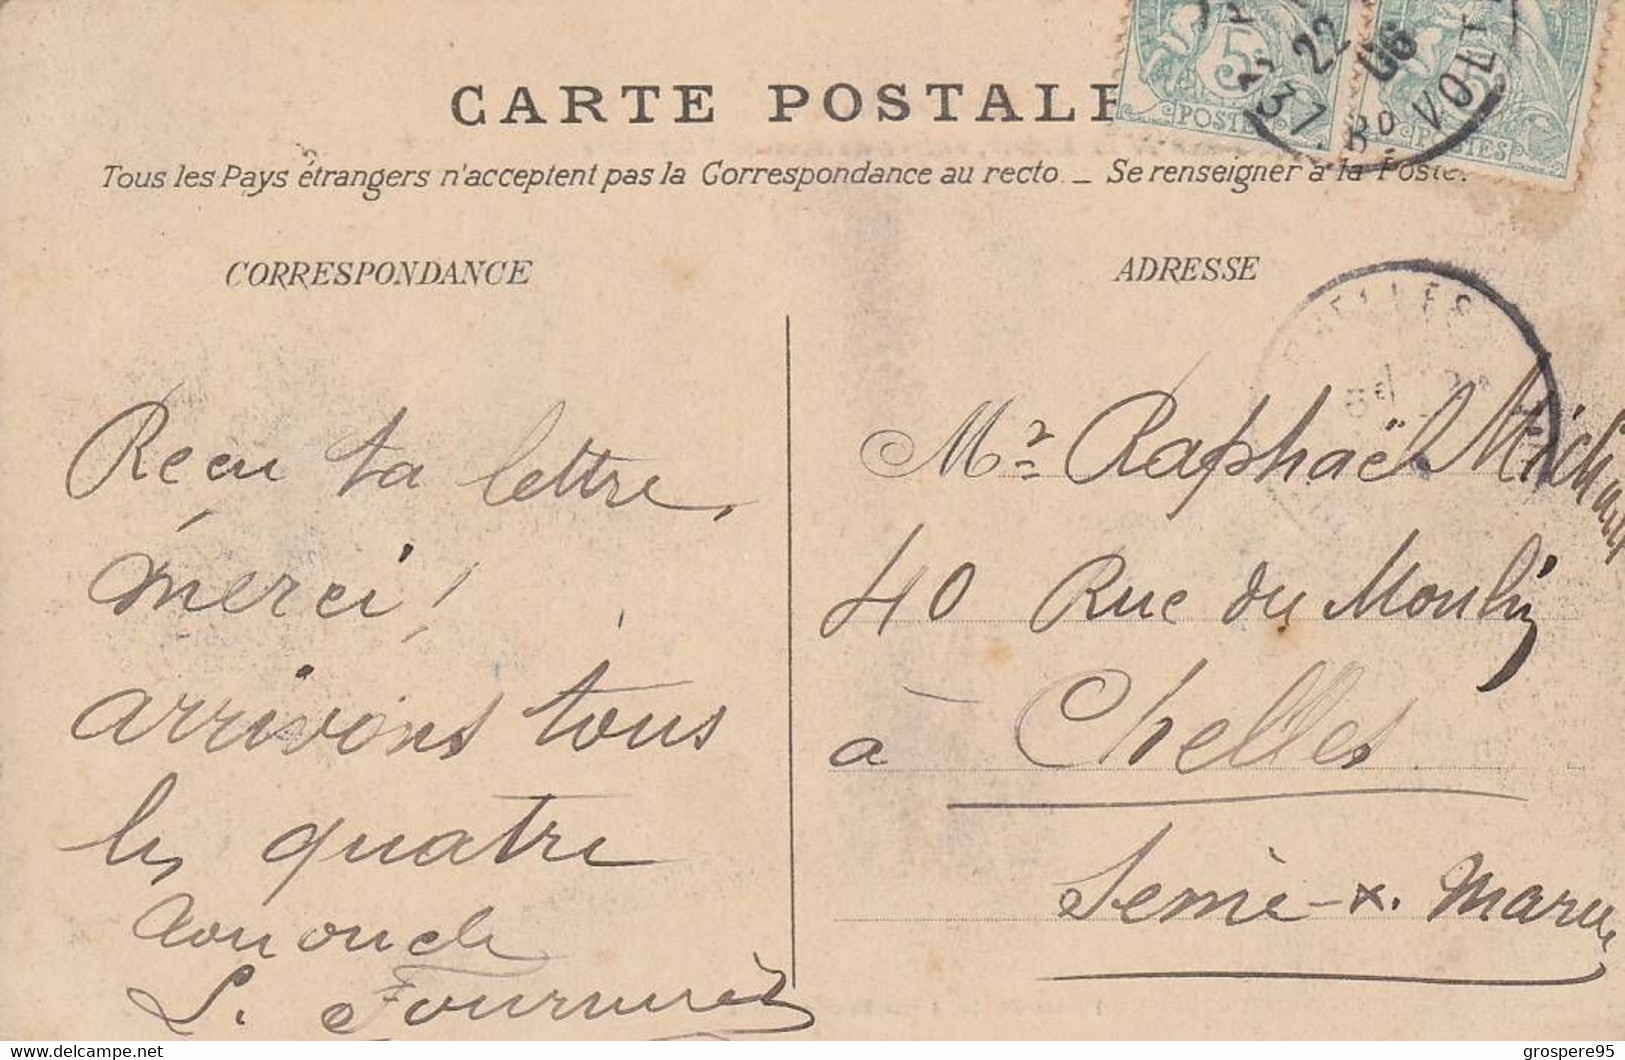 CARTE POSTALE
Tous les Pays étrangers n'acceptent pas la Correspondance au recto. _ Se renseigner à la Poste.
CORRESPONDANCE
ADRESSE
5 POSTES
POSTES
22 06
37 . Bd VOLT
CHELLES
Reçu ta lettre,
merci!
arrivons tous
les quatre
ton oncle
L.
Mr Raphaël
40 Rue du Moulin
à Chelles
Seine-x. Marne
www.delcampe.net
grospere95